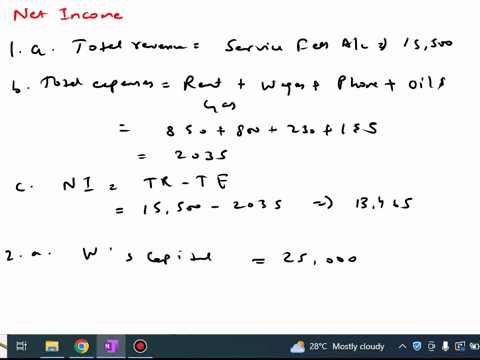 Net Income
1. a. Total revenue = Service Fees A/c ⇒ 15,500
b. Total expenses = Rent + Wages + Phone + Oil &
Gas
= 850 + 800 + 230 + 155
= 2035
c. NI = TR - TE
= 15,500 - 2035 ⇒ 13,465
2. a. W's Capital = 25,000
28°C Mostly cloudy